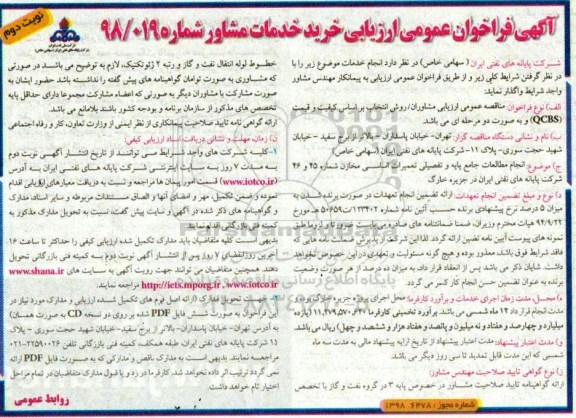 نوبت دوم
آگهی فراخوان عمومی ارزیابی خرید خدمات مشاور شماره ۹۸/۰۱۹
شرکت پایانه های نفتی ایران ( سهامی خاص) در نظر دارد انجام خدمات موضوع زیر را با
در نظر گرفتن شرایط کلی زیر و از طریق فراخوان عمومی ارزیابی به پیمانکار مهندس مشاور
واجد شرایط واگذار نماید:
الف) نوع فراخوان: مناقصه عمومی ارزیابی مشاوران/ روش انتخاب بر اساس کیفیت و قیمت
(QCBS) و به صورت دو مرحله ای می باشد.
ب) نام و نشانی دستگاه مناقصه گزار: تهران- خیابان پاسداران - بالاتر از برج سفید - خیابان
شهید حجت سوری- پلاک ۱۱- شرکت پایانه های نفتی ایران (سهامی خاص)
ج) موضوع: انجام مطالعات جامع پایه و تفصیلی تعمیرات اساسی مخازن شماره ۲۵ و ۲۶
شرکت پایانه های نفتی ایران در جزیره خارگ
د) نوع و مبلغ تضمین انجام تعهدات: ارائه تضمین انجام تعهدات در صورت برنده شدن به
میزان ۵ درصد نرخ پیشنهادی برنده حسب آئین نامه شماره ۱۲۳۴۰۲/ت۵۰۶۵۹هـ مورخ
۹۴/۹/۲۲ هیات محترم وزیران، ضمنا ضمانتنامه های صادره
نمونه های پیوست آیین نامه تضین ارائه گردد. لذا این شرکت از پذیرش ضمانت نامه هایی که
فاقد شرایط فوق باشد، معذور بوده و هیچ گونه مسئولیت و تعهدی در این خصوص نخواهد
داشت. شایان ذکر می باشد پس از انعقاد قرارداد به میزان ده درصد از هر صورت وضعیت
برنده به عنوان تضمین حسن انجام کار کسر می گردد
ه) محل، مدت زمان اجرای خدمات و برآورد کارفرما: محل اجرای پروژه جزیره خارگ بوده و
مدت انجام قرارداد ۱۴ ماه شمسی می باشد. برآورد تخمینی کارفرما ۱۱,۲۷۹,۵۷۰,۶۲۰ (یازده
میلیارد و چهارصد و هفتاد و نه میلیون و پانصد و هفتاد هزار و ششصد و چهل) ریال می باشد
و) مدت اعتبار پیشنهاد: مدت اعتبار پیشنهاد از تاریخ ارایه پیشنهاد مالی به مدت سه ماه
شمسی که این مدت قابل تمدید تا سی روز دیگر می باشد.
ز) نوع گواهی تایید صلاحیت مهندس مشاور:
ارائه گواهینامه تایید صلاحیت مشاور در خصوص پایه ۳ در گروه نفت و گاز با تخصص
خطوط لوله انتقال نفت و گاز و رتبه ۲ ژئوتکنیک، لازم به توضیح می باشد در صورتی
که مشاوری به صورت توامان گواهینامه های پیش گفته را نداشته باشد حضور ایشان به
صورت مشارکت با مشاوران دیگر به صورتی که اعضاء مشارکت مجموعا دارای حداقل پایه
تخصص های مذکور از سازمان برنامه و بودجه کشور باشند بلامانع می باشد.
ارائه گواهی نامه تایید صلاحیت پیمانکاری از نظر ایمنی از وزارت تعاون، کار و رفاه اجتماعی
ن) زمان، مهلت و نشانی دریافت اسناد ارزیابی کیفی:
۱- کلیت شرکت های واجد شرایط می توانند از تاریخ انتشار آگهی نوبت دوم
به مدت ۷ روز به سایت اینترنتی شرکت پایانه های نفتی ایران به آدرس
(www.iotco.ir) قسمت امور پیمان ها مراجعه و نسبت به دریافت معیارهای ارزیابی اقدام
نموده و ضمن تکمیل، مهر و امضای آنها و الصاق مستندات مربوطه و سایر اسناد، مدارک
و گواهینامه های ذکر شده در آگهی و سایت پیش گفت، نسبت به تحویل مدارک مذکور به
بدیهی است کلیه متقاضیان باید مدارک تکمیل شده ارزیابی کیفی را حداکثر تا ساعت ۱۶
آخرین روز انقضای ۷ روز پس از انتشار آگهی نوبت دوم به کمیته فنی بازرگانی تحویل
دهند. همچنین متقاضیان می توانند جهت رویت آگهی به سایت های www.shana.ir
، www.iotco.ir و http://iets.mporg.ir مراجعه نمایند.
این فراخوان به صورت شش فایل PDF شده بر روی دو نسخه CD به صورت همسان)
به آدرس تهران- خیابان پاسداران- بالاتر از برج سفید-خیابان شهید حجت سوری - پلاک
۱۱ شرکت پایانه های نفتی ایران، طبقه همکف، کمیته فنی بازرگانی، تلفن ۲۲۵۹۰۰۲۶-۰۲۱
مراجعه نمایند. بدیهی است به مدارک ناقص و مدارکی که به صورت فایل PDF ارائه
نمی گردد ترتیب اثر داده نخواهد شد. کارفرما در رد و یا قبول مدارک متقاضیان در تمام مراحل
اختیار تام خواهد داشت.
روابط عمومی
شماره مجوز: ۱۳۹۸.۶۴۷۸